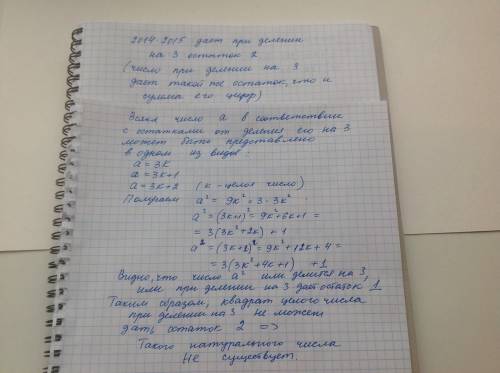 2014·2015 дает при делении
на 3 остаток 2
(число при делении на 3
дает такой же остаток, что и
сумма его цифр)
Всякое число а в соответствии
с остатками от деления его на 3
может быть представлено
в одном из видов:
a = 3k
a = 3k+1
a = 3k+2 (к - целое число)
Получаем a² = 9k² = 3·3k²
a² = (3k+1)² = 9k²+6k+1 =
= 3(3k²+2k) + 1
a² = (3k+2)² = 9k²+12k+4 =
= 3(3k²+4k+1) +1
Видно, что число a² или делится на 3,
или при делении на 3 дает остаток 1
Таким образом, квадрат целого числа
при делении на 3 не может
дать остаток 2 =>
Такого натурального числа
не существует.